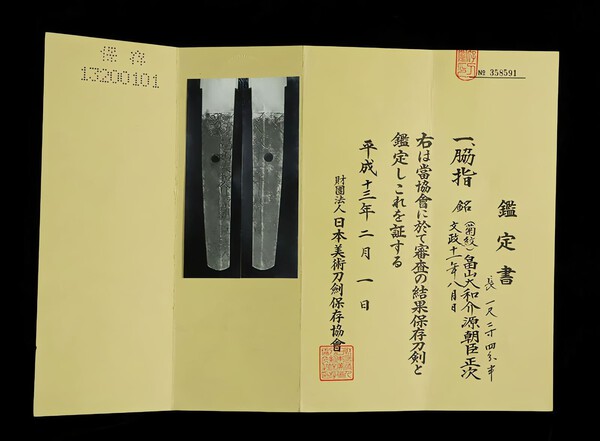 保存
13200101
№ 358591
鑑定書
一、脇指 銘 (菊紋)畠山大和介源朝臣正次
文政十一年八月日
長 一尺二寸四分半
右は當協會に於て審査の結果保存刀剣と
鑑定しこれを証する
平成十三年二月一日
財團法人日本美術刀劍保存協會